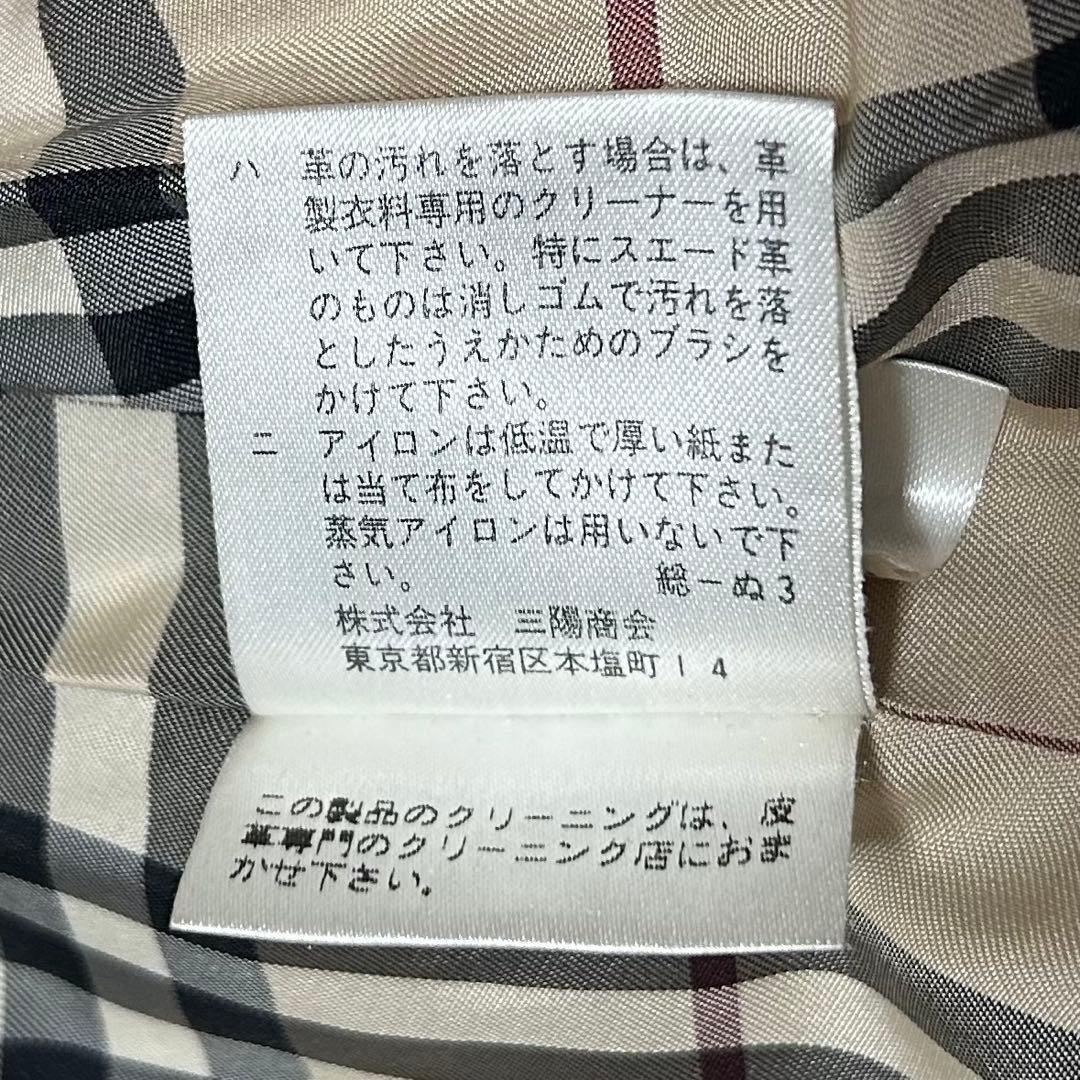 ハ 革の汚れを落とす場合は、革
製衣料専用のクリーナーを用
いて下さい。特にスエード革
のものは消しゴムで汚れを落
としたうえかためのブラシを
かけて下さい。
ニ アイロンは低温で厚い紙また
は当て布をしてかけて下さい。
蒸気アイロンは用いないで下
さい。 総ーぬ3
株式会社 三陽商会
東京都新宿区本塩町14
この製品のクリーニングは、皮
革専門のクリーニング店におま
かせ下さい。